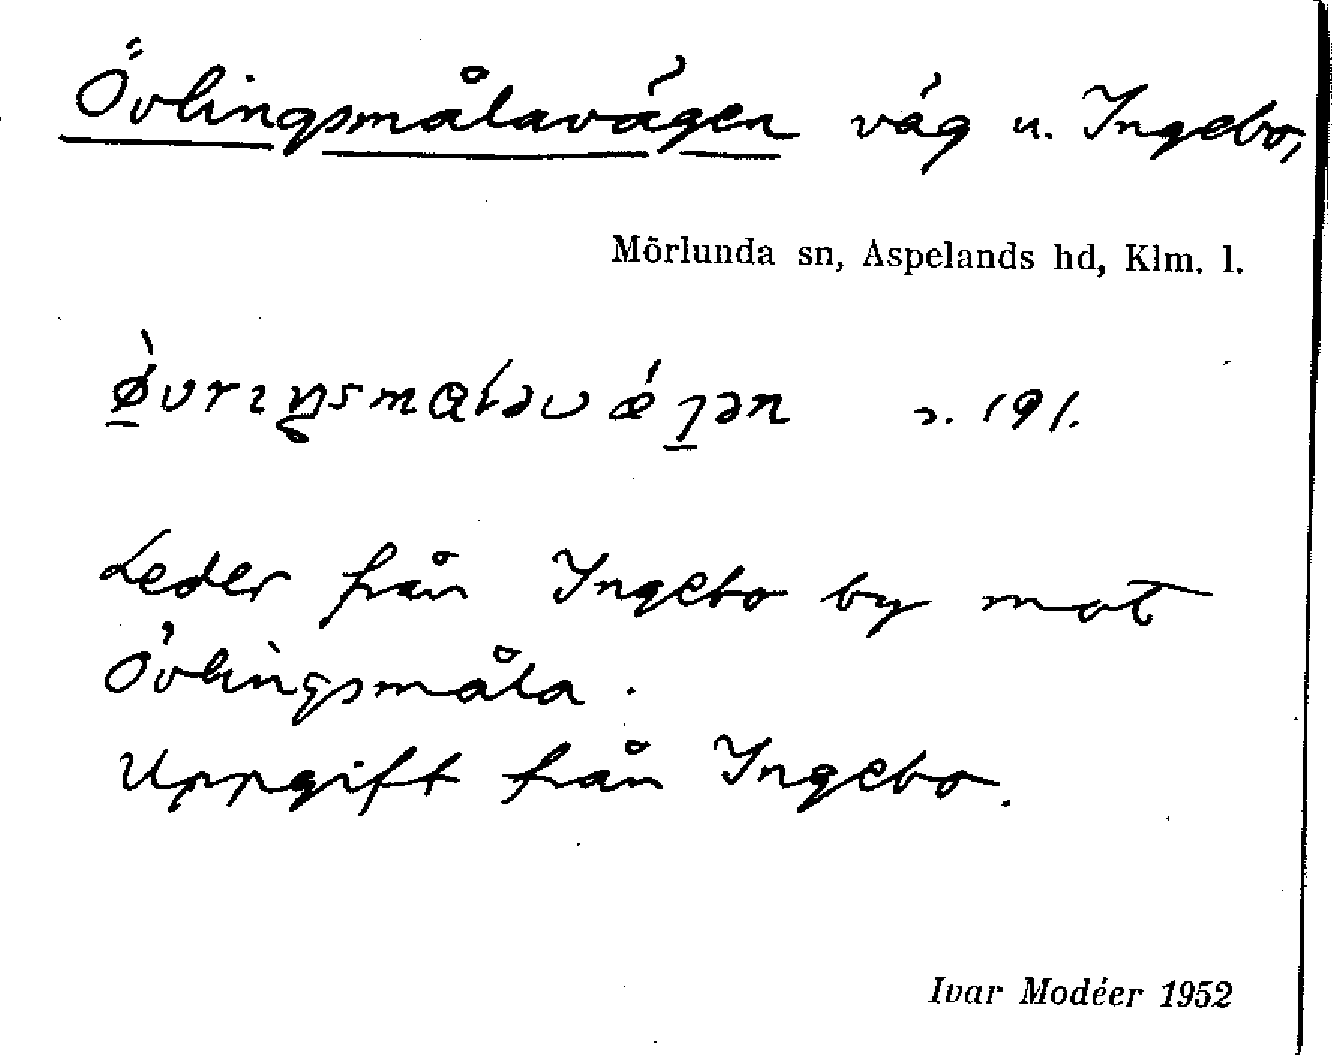 Övlingsmålavägen väg u. Ingebo,
Mörlunda sn, Aspelands hd, Klm. l.
191.
Leder från Ingebo by mot
Övlingsmåla.
Uppgift från Ingebo.
Ivar Modéer 1952